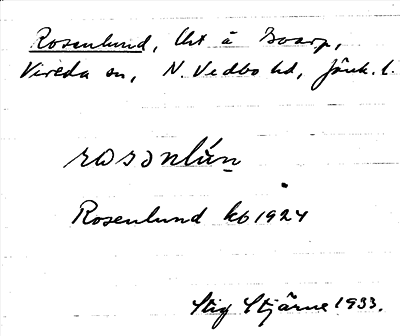 Rosenlund, lht å Boarp,
Vireda sn, N. Vedbo hd, Jönk. l.
rosənlún
Rosenlund kb 1924
Stig Stjärne 1933.